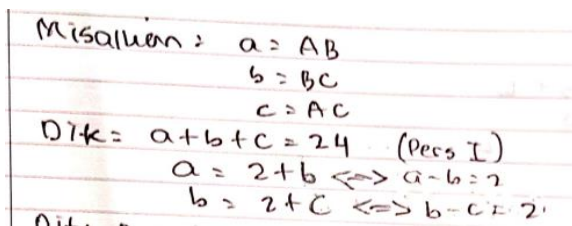 Misalkan : a = AB
b = BC
c = AC
Dik = a+b+c = 24 (Pers I)
a = 2+b <=> a-b=2
b = 2+c <=> b-c=2